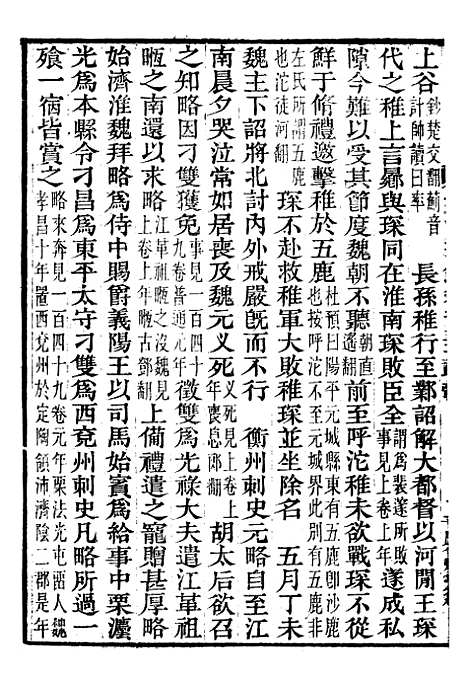 上谷鈔楚交翻薊音計師讀曰率　長孫稚行至鄴詔解大都督以河閒王琛
代之稚上言曏與琛同在淮南琛敗臣全謂爲裴邃所敗事見上卷上年遂成私
隙今難以受其節度魏朝不聽朝直遙翻前至呼沱稚未欲戰琛不從
鮮于脩禮邀擊稚於五鹿杜預曰陽平元城縣東有五鹿卽沙鹿也按呼沱不至元城界此有五鹿非
左氏所謂五鹿也沱徒河翻琛不赴救稚軍大敗稚琛並坐除名　五月丁未
魏主下詔將北討內外戒嚴旣而不行　衡州刺史元略自至江
南晨夕哭泣常如居喪及魏元乂死乂死見上卷上年喪息郎翻胡太后欲召
之知略因刁雙獲免事見一百四十九卷普通元年徵雙爲光祿大夫遣江革祖
暅之南還以求略江革祖暅之沒魏見上卷上年暅古鄧翻上備禮遣之寵贈甚厚略
始濟淮魏拜略爲侍中賜爵義陽王以司馬始賓爲給事中栗灋
光爲本縣令刁昌爲東平太守刁雙爲西兗州刺史凡略所過一
飱一宿皆賞之略來奔見一百四十九卷元年栗法光屯留人魏孝昌十年置西兗州於定陶領沛濟陰二郡是年